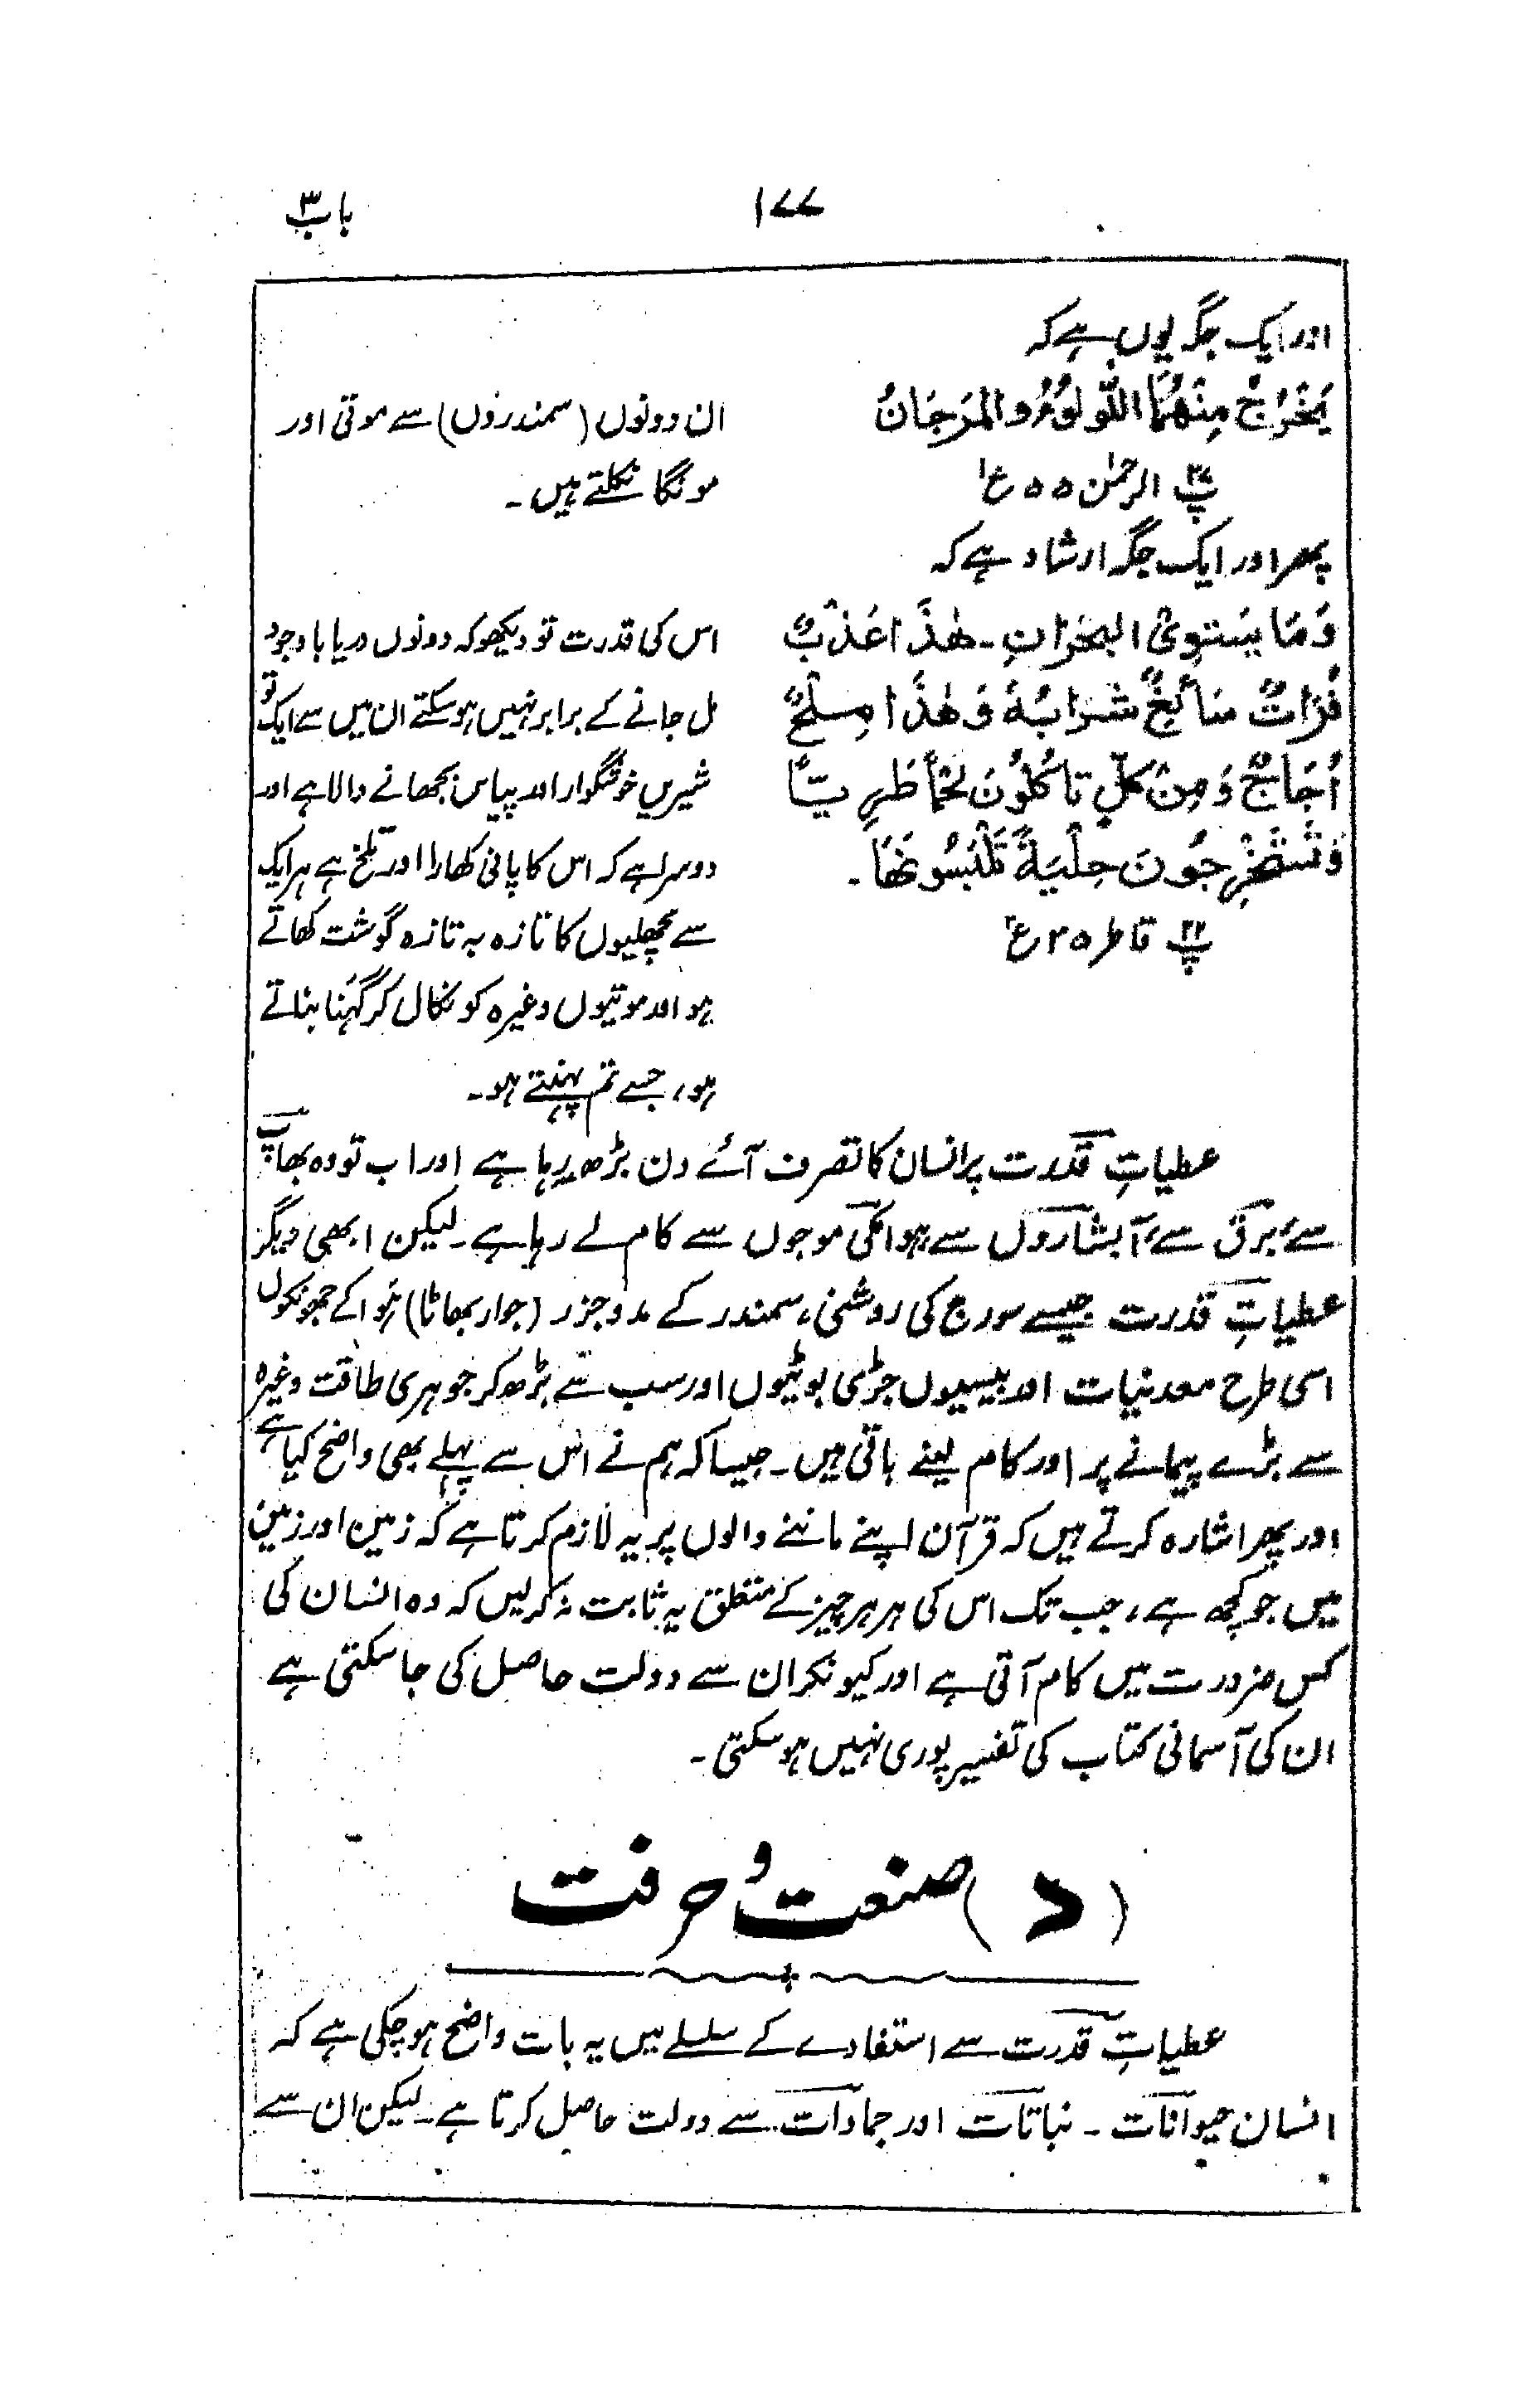 باب ۳
۱۷۷
اور ایک جگہ یوں ہے کہ
یَخْرُجُ مِنْهُمَا اللُّؤلُؤُ وَالمَرْجَانُ
پ ۲۷ الرحمٰن ۵۵ ع ۱
ان دونوں (سمندروں) سے موتی اور
مونگا نکلتے ہیں۔
پھر اور ایک جگہ ارشاد ہے کہ
وَمَا یَسْتَوِیْ البَحْرَانِ۔ هٰذَا عَذْبٌ
فُرَاتٌ سَائِغٌ شَرَابُهٗ وَ هٰذَا مِلْحٌ
اُجَاجٌ وَ مِنْ کُلٍّ تَاکُلُوْنَ لَحْماً طَرِیّاً
وَتَسْتَخْرِجُوْنَ حِلْیَةً تَلْبَسُوْنَهَا۔
پ ۲۲ فاطر ۳۵ ع ۲
اس کی قدرت تو دیکھو کہ دونوں دریا باوجود
مل جانے کے برابر نہیں ہوسکتے ان میں سے ایک تو
شیریں خوشگوار اور پیاس بجھانے والا ہے اور
دوسرا ہے کہ اس کا پانی کھارا اور تلخ ہے ہر ایک
سے مچھلیوں کا تازہ بہ تازہ گوشت کھاتے
ہو اور موتیوں وغیرہ کو نکال کر گہنا بناتے
ہو، جسے تم پہنتے ہو۔
عطیاتِ قدرت پر انسان کا تصرف آئے دن بڑھ رہا ہے اور اب تو وہ بھاپ
سے، برق سے، آبشاروں سے ہوا کی موجوں سے کام لے رہا ہے۔ لیکن ابھی دیگر
عطیاتِ قدرت جیسے سورج کی روشنی، سمندر کے مدوجزر (جوار بھاٹا) ہوا کے جھونکوں
اسی طرح معدنیات اور بیسیوں جڑی بوٹیوں اور سب سے بڑھ کر جوہری طاقت وغیرہ
سے بڑے پیمانے پر اور کام لینے باقی ہیں۔ جیسا کہ ہم نے اس سے پہلے بھی واضح کیا ہے
اور پھر اشارہ کرتے ہیں کہ قرآن اپنے ماننے والوں پر یہ لازم کرتا ہے کہ زمین اور زمین
میں جو کچھ ہے، جب تک اس کی ہر ہر چیز کے متعلق یہ ثابت نہ کرلیں کہ وہ انسان کی
کس ضرورت میں کام آتی ہے اور کیونکر ان سے دولت حاصل کی جا سکتی ہے
ان کی آسمانی کتاب کی تفسیر پوری نہیں ہوسکتی۔
(د) صنعت و حرفت
عطیاتِ قدرت سے استفادے کے سلسلے میں یہ بات واضح ہوچکی ہے کہ
انسان حیوانات۔ نباتات اور جمادات سے دولت حاصل کرتا ہے۔ لیکن ان سے